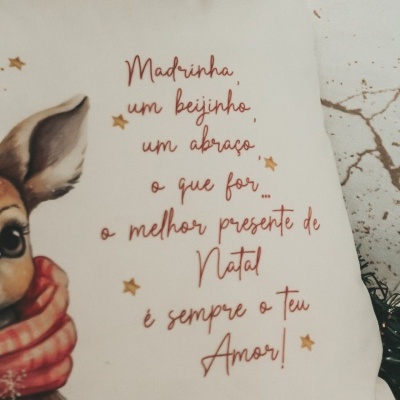 Madrinha,
um beijinho,
um abraço,
o que for...
o melhor presente de
Natal
é sempre o teu
Amor!